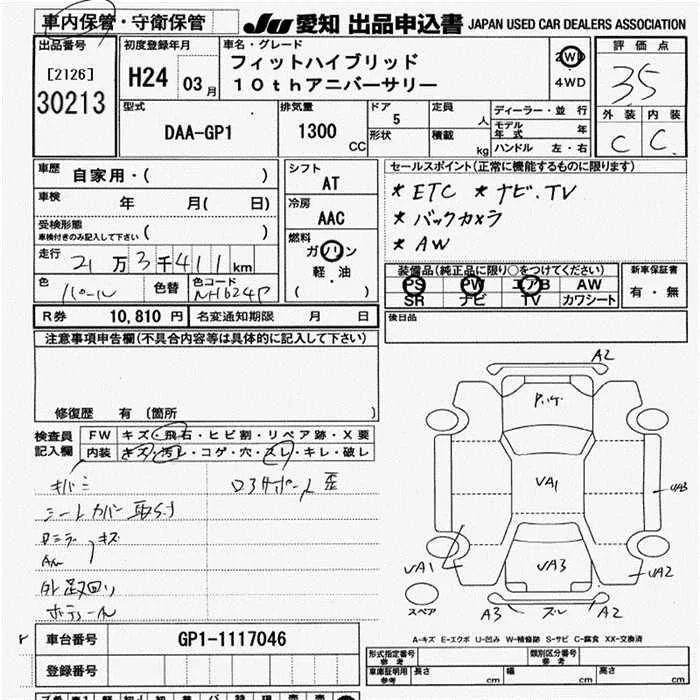 車内保管・守衛保管
JU 愛知 出品申込書 JAPAN USED CAR DEALERS ASSOCIATION
出品番号
[2126]
30213
初度登録年月
H24 03 月
車名・グレード
フィットハイブリッド
10thアニバーサリー
2WD
4WD
評価点
35
外装 内装
C C
型式
DAA-GP1
排気量
1300
CC
ドア
5
形状
定員
人
積載
kg
ディーラー・並行
モデル年式 年
ハンドル 左・右
車歴 自家用・( )
車検 年 月( 日)
受検形態
車検付きのみ記入して下さい ( )
走行 21 万 3 千 411 km
色 パール 色替 色コード NH624P
シフト
AT
冷房
AAC
燃料
ガソリン
軽・油
( )
セールスポイント(正常に機能するものに限ります)
* ETC * ナビ.TV
* バックカメラ
* AW
装備品(純正品に限り○をつけてください)
PS PW エアB AW
SR ナビ TV カワシート
新車保証書
有・無
R券 10,810 円 名変通知期限 月 日
後日品
注意事項申告欄(不具合内容等は具体的に記入して下さい)
修復歴 有 (箇所 )
検査員記入欄
FW キズ・飛石・ヒビ割・リペア跡・X要
内装 キズ・汚レ・コゲ・穴・スレ・キレ・破レ
キバミ
シートカバー取付
ロミラー キズ
AW
外及回り
ボディー
ロアサポート歪
A2
P.いけ
UA1
UA3
UA3
UA1
UA2
スペア
A3 スレ A2
A-キズ E-エクボ U-凹み W-補修跡 S-サビ C-腐食 XX-交換済
車台番号 GP1-1117046
登録番号
形式指定番号 参考
類別区分番号 参考
車庫証明用 参考 長さ cm 幅 cm 高さ cm